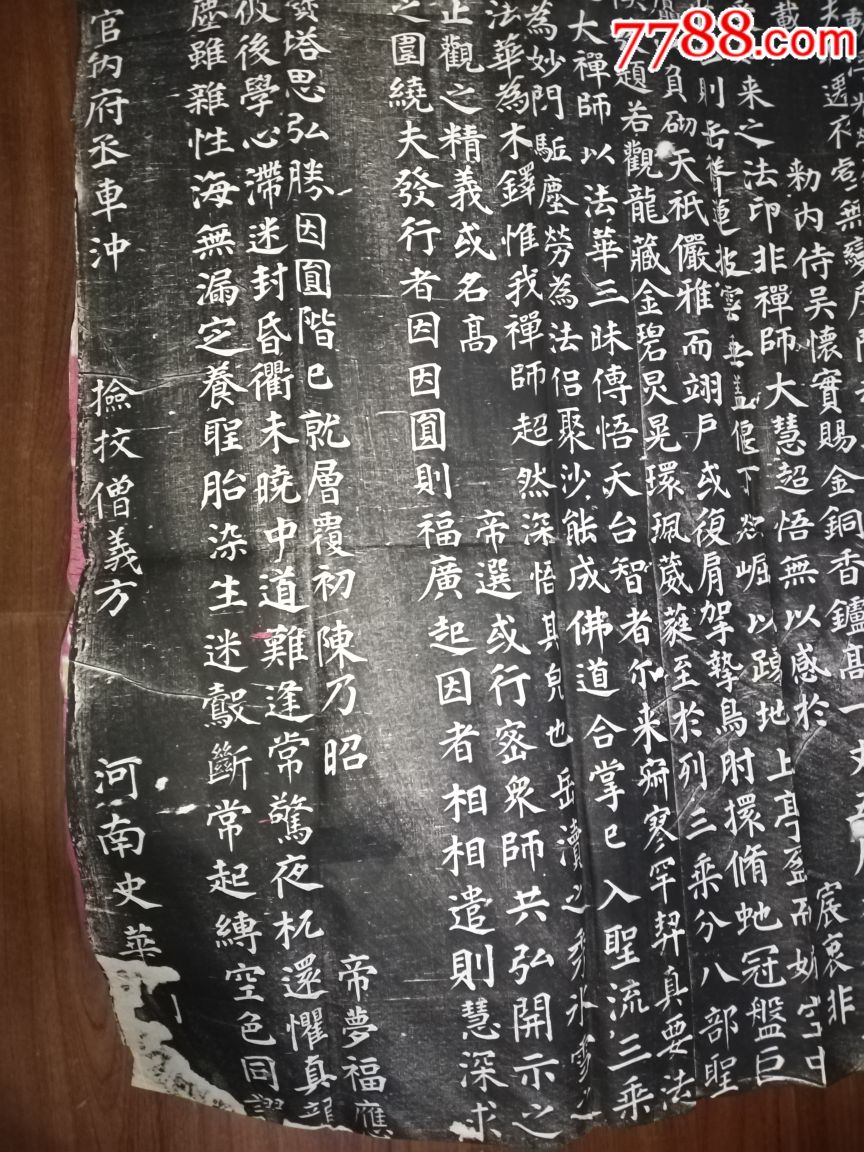 7788.com
勑內侍吳懷實賜金銅香鑪高一丈
來之法印非禪師大慧超悟無以感於
宸衷非
則岳聳蓮披雲垂蓋偃下欻崛以踴地上亭盈而媚空中
負砌天祇儼雅而翊戶或復肩挐摯鳥肘擐脩虵冠盤巨
題若觀龍藏金碧炅晃環珮葳蕤至於列三乘分八部聖
大禪師以法華三昧傳悟天台智者尒來寂寥罕契真要法
為妙門駈塵勞為法侶聚沙能成佛道合掌已入聖流三乘
法華為木鐸惟我禪師超然深悟其皃也岳瀆之秀氷雪之
止觀之精義或名高
帝選或行密眾師共弘開示之
之圍繞夫發行者因因圓則福廣起因者相相遣則慧深求
寶塔思弘勝因圓階已就層覆初陳乃昭
帝夢福應
後學心滯迷封昏衢未曉中道難逢常驚夜杌還懼真龍
塵雖雜性海無漏定養聖胎染生迷鷇斷常起縛空色同謬
官內府丞車沖 撿挍僧義方 河南史華